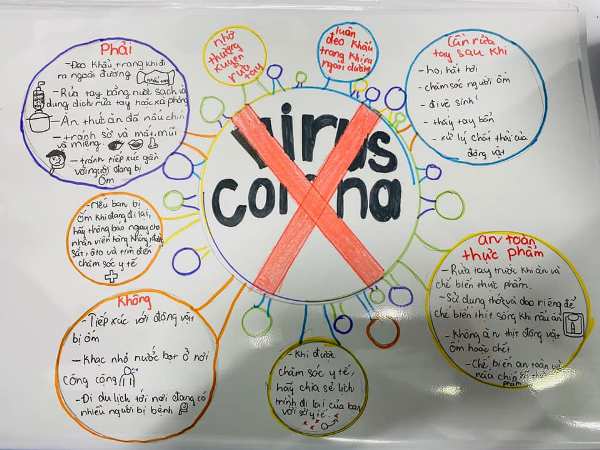 Phải
- Đeo khẩu trang khi đi
ra ngoài đường
- Rửa tay bằng nước sạch và
dung dịch rửa tay hoặc xà phòng
- Ăn thức ăn đã nấu chín
- tránh sờ và mắt, mũi
và miệng
- tránh tiếp xúc gần
với người đang bị
ốm
nhớ
thường
xuyên
rửa
tay
luôn
đeo khẩu
trang khi ra
ngoài đường
Cần rửa
tay sau khi
- ho, hắt hơi
- chăm sóc người ốm
- đi vệ sinh
- thấy tay bẩn
- xử lý chất thải của
động vật
virus
corona
- Nếu bạn bị
ốm khi đang đi lại,
hãy thông báo ngay cho
nhân viên hàng không, đường
sắt, ôtô và tìm đến
chăm sóc y tế
an toàn
thực phẩm
- Rửa tay trước khi ăn và
chế biến thực phẩm.
- Sử dụng thớt và dao riêng để
chế biến thịt sống khi nấu ăn
- Không ăn thịt động vật
ốm hoặc chết
- Chế biến an toàn và
nấu chín
Không
- Tiếp xúc với động vật
bị ốm
- Khạc nhổ nước bọt ở nơi
công cộng
- Đi du lịch tới nơi đang có
nhiều người bị bệnh
- Khi được
chăm sóc y tế,
hãy chia sẻ lịch
trình đi lại của bạn
với sở y tế.